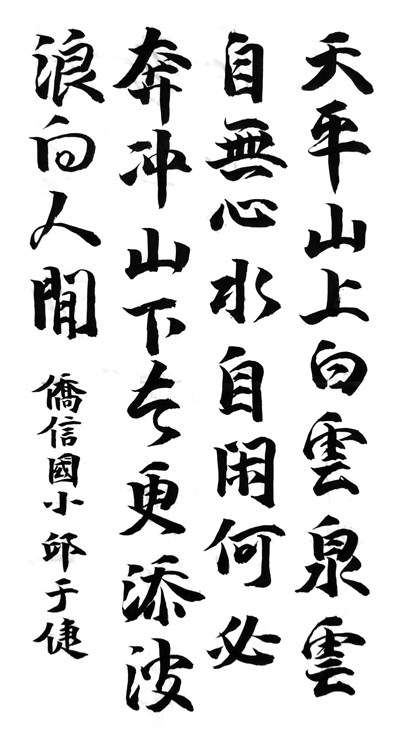 天平山上白雲泉雲
自無心水自閑何必
奔冲山下去更添波
浪向人間
僑信國小 邱于倢